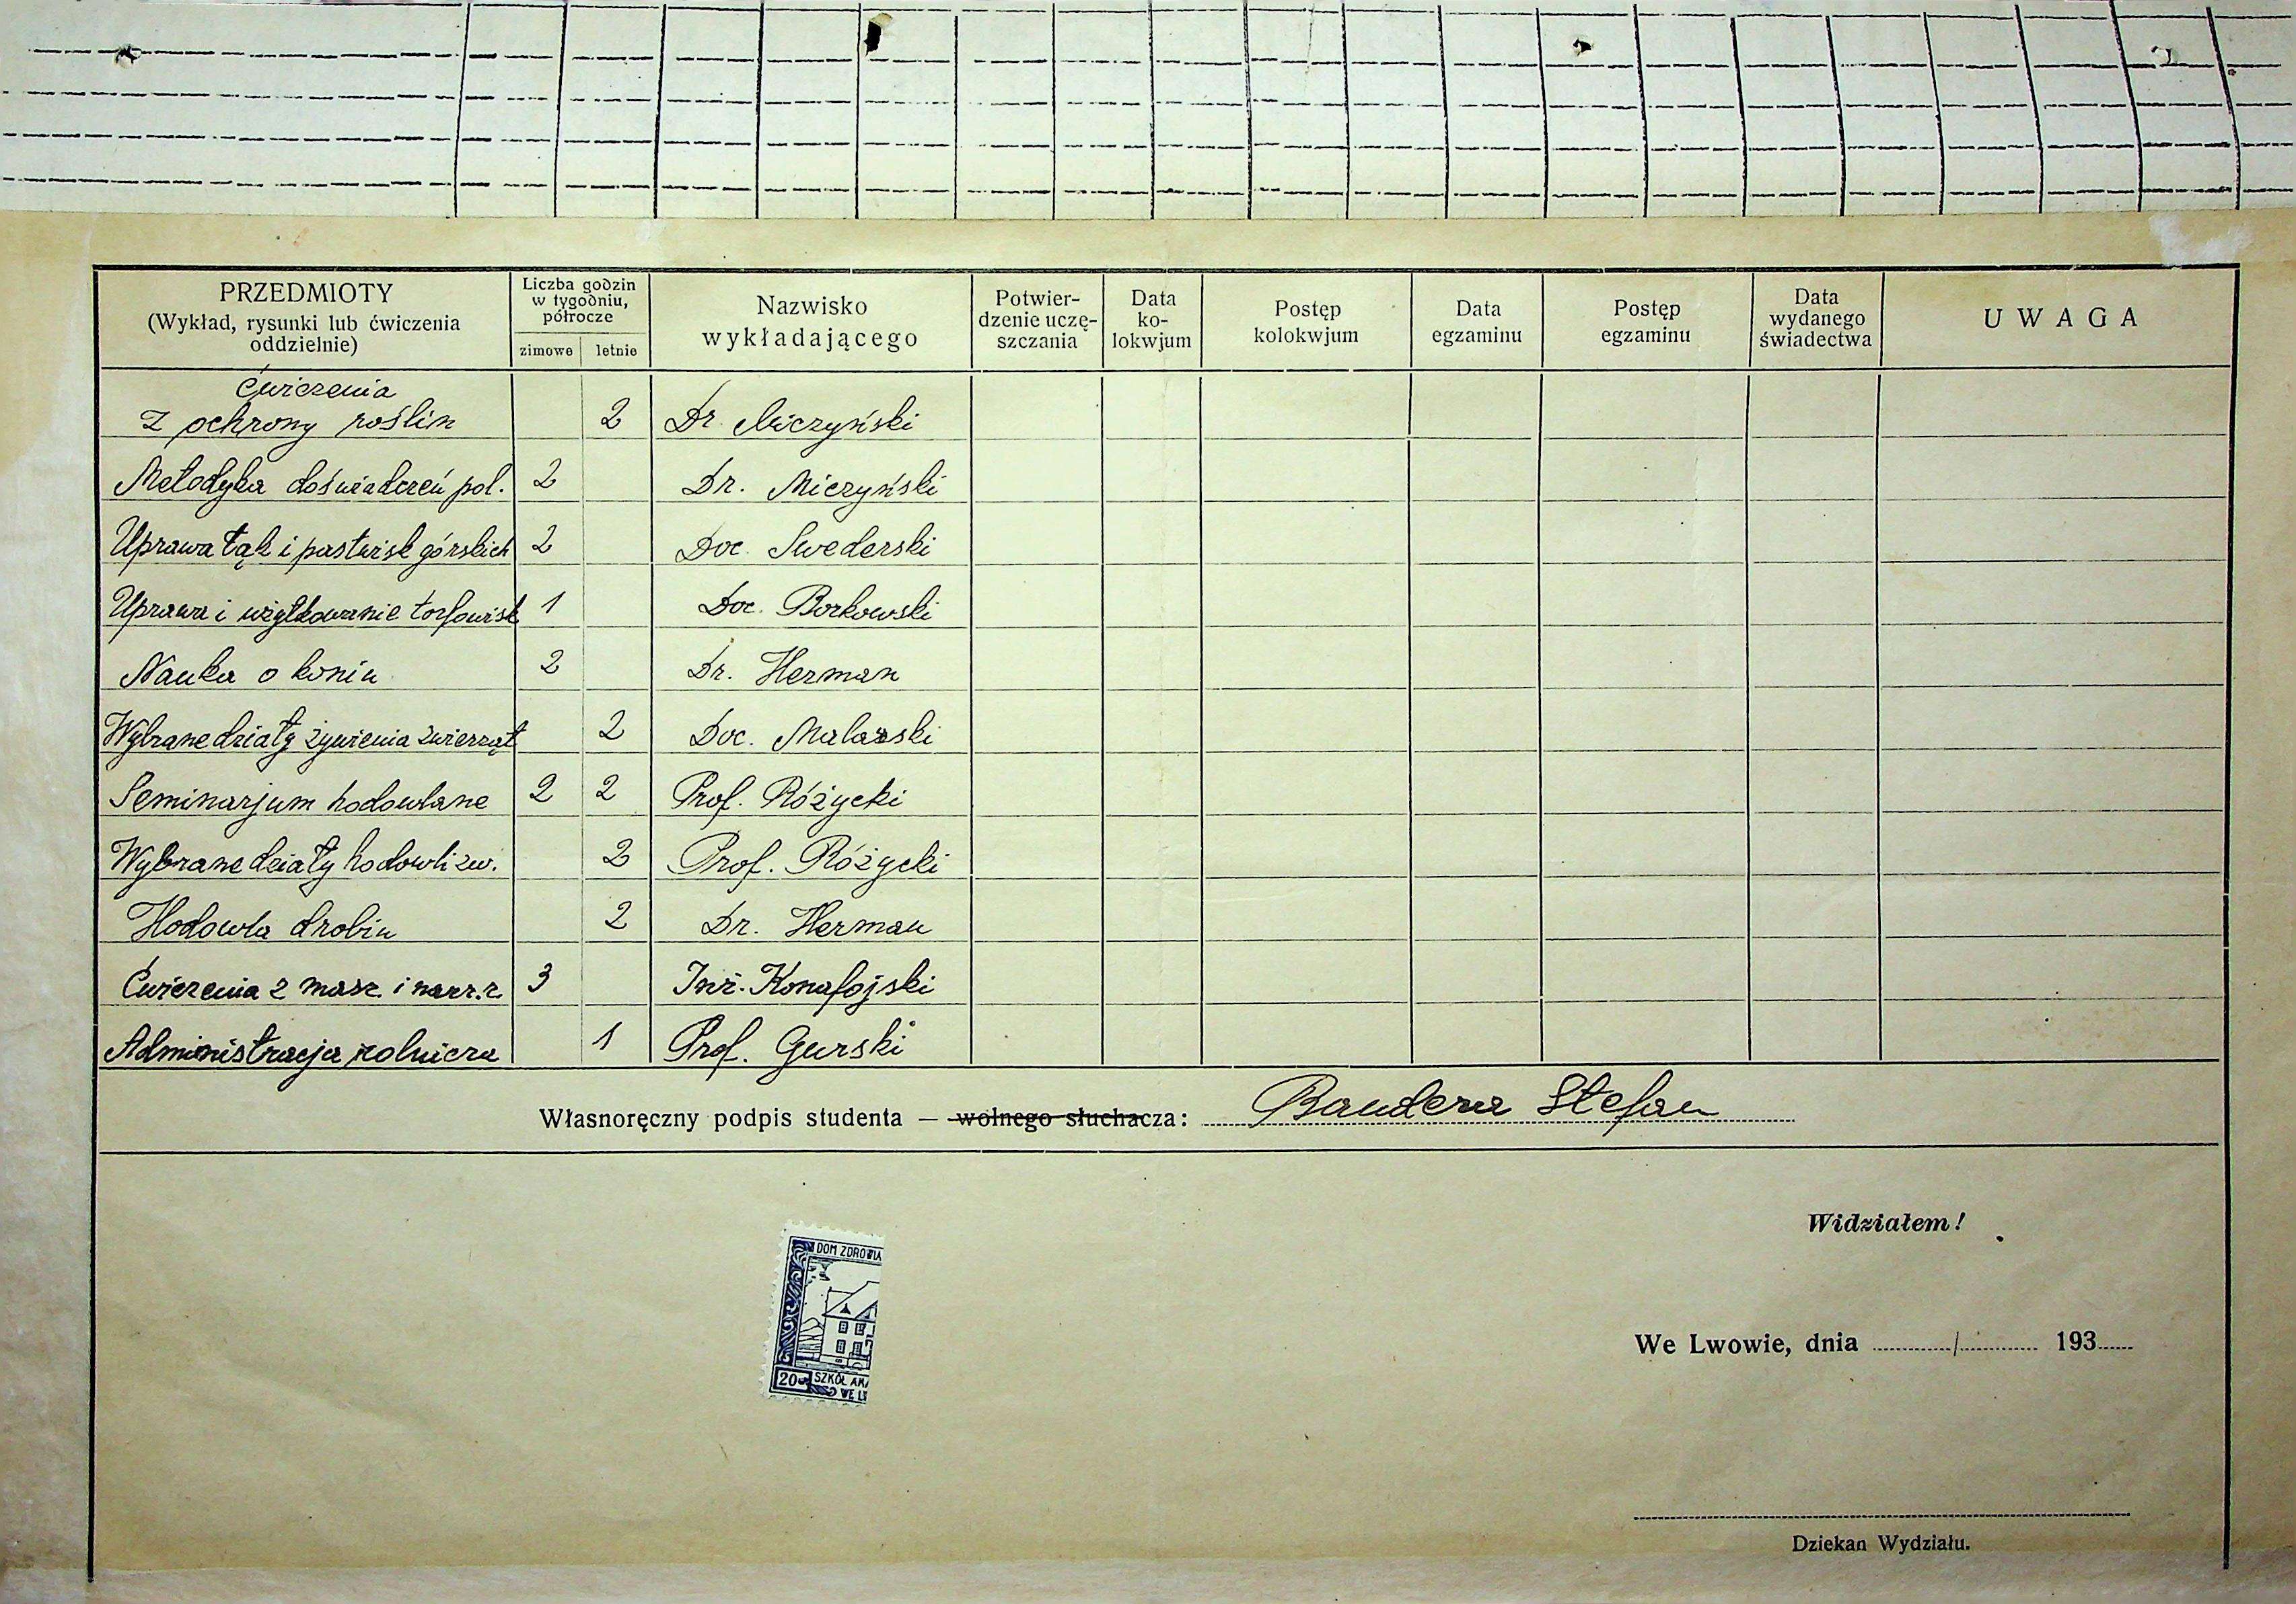 PRZEDMIOTY
(Wykład, rysunki lub ćwiczenia
oddzielnie)
Liczba godzin
w tygodniu,
półrocze
zimowe letnie
Nazwisko
wykładającego
Potwier-
dzenie uczę-
szczania
Data
ko-
lokwjum
Postęp
kolokwjum
Data
egzaminu
Postęp
egzaminu
Data
wydanego
świadectwa
UWAGA
Ćwiczenia
z ochrony roślin 2 Dr Miczyński
Metodyka doświadczeń pol. 2 Dr. Miczyński
Uprawa łąk i pastwisk górskich 2 Doc. Swederski
Uprawa i użytkowanie torfowisk 1 Doc. Borkowski
Nauka o koniu 2 Dr. Herman
Wybrane działy żywienia zwierząt 2 Doc. Malarski
Seminarjum hodowlane 2 2 Prof. Różycki
Wybrane działy hodowli zw. 2 Prof. Różycki
Hodowla drobiu 2 Dr. Herman
Ćwiczenia z masz. i narz. r. 3 Inż. Konafojski
Administracja rolnicza 1 Prof. Gurski
Własnoręczny podpis studenta — wolnego słuchacza: Bandera Stefan
Widziałem!
DOM ZDROWIA
20 SZKÓŁ AKA
WE LW
We Lwowie, dnia ............/............ 193......
Dziekan Wydziału.